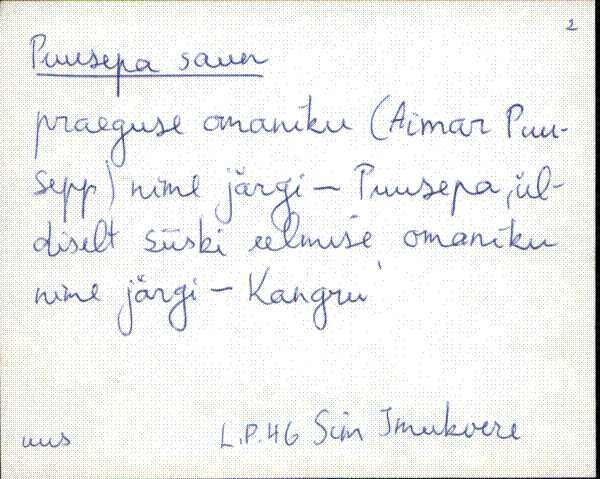 2
Puusepa saun
praeguse omaniku (Aimar Puu-
sepp) nime järgi – Puusepa, ül-
diselt siiski eelmise omaniku
nime järgi – Kangru
uus L.P.46 Siim Imukvere